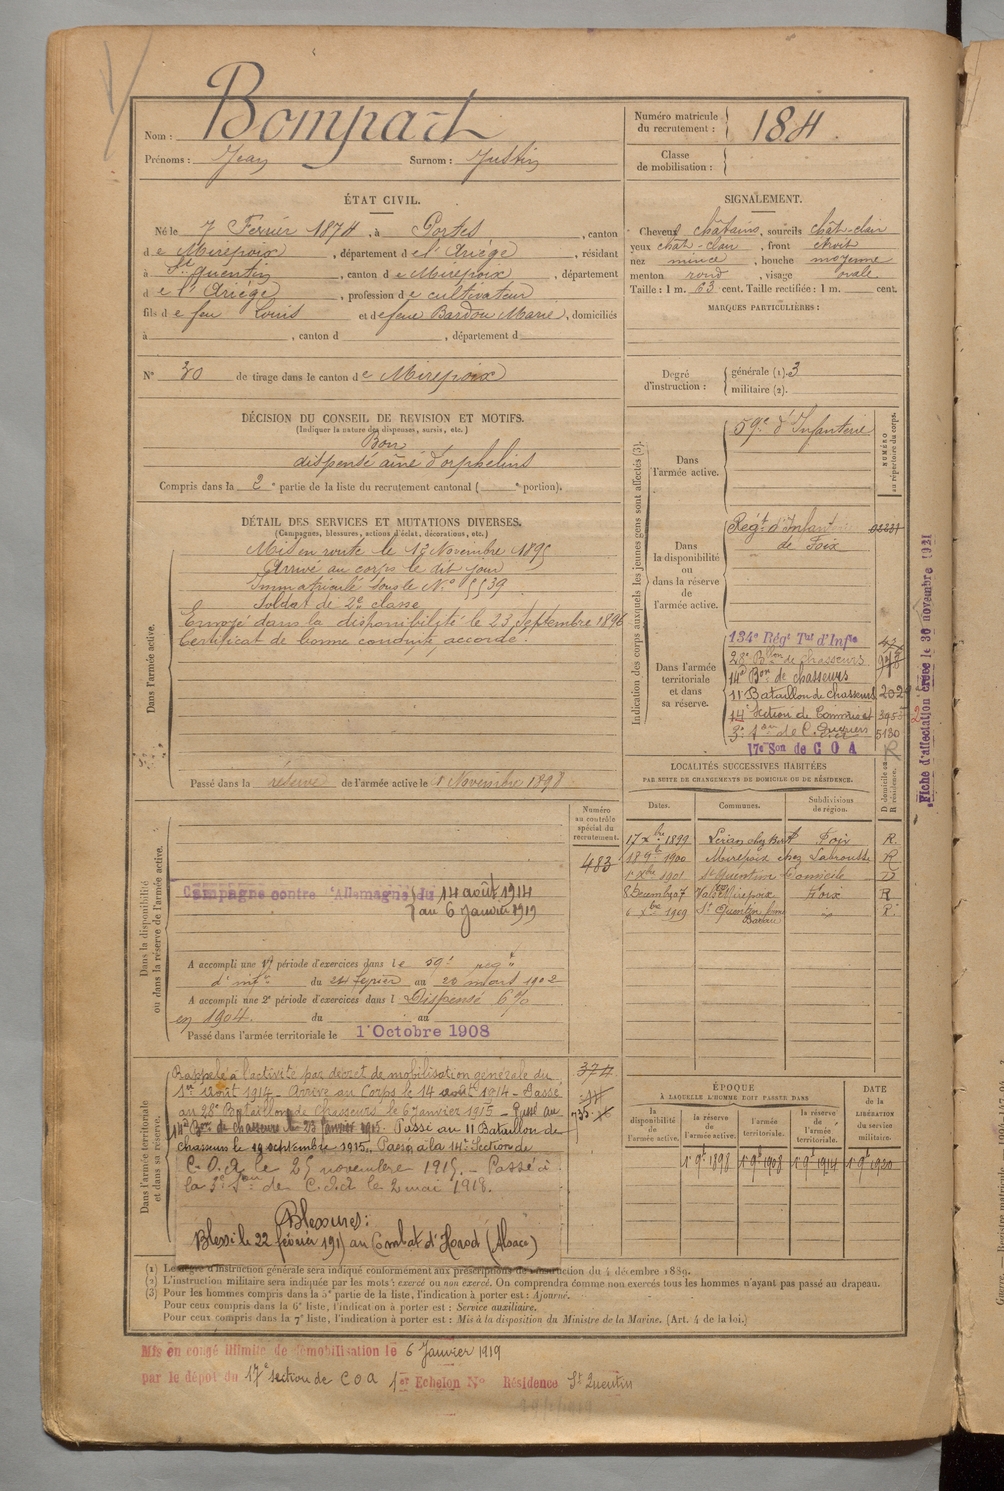 Nom : Bompart
Prénoms : Jean Surnom : Justin
Numéro matricule du recrutement : 184
Classe de mobilisation :
ÉTAT CIVIL.
Né le 7 Fevrier 1874, à Portes, canton
de Mirepoix, département de l'Ariége, résidant
à St Quentin, canton de Mirepoix, département
de l'Ariége, profession de cultivateur
fils de feu Louis et de feue Bardou Marie, domiciliés
à , canton d , département d
N° 30 de tirage dans le canton de Mirepoix
SIGNALEMENT.
Cheveux châtains, sourcils chât-clair
yeux chat-clair, front étroit
nez mince, bouche moyenne
menton rond, visage ovale
Taille : 1 m. 63 cent. Taille rectifiée : 1 m. cent.
MARQUES PARTICULIÈRES :
Degré d'instruction : générale (1). 3
militaire (2).
DÉCISION DU CONSEIL DE REVISION ET MOTIFS.
(Indiquer la nature des dispenses, sursis, etc.)
Bon
dispensé aîné d'orphelins
Compris dans la 2e partie de la liste du recrutement cantonal ( e portion).
DÉTAIL DES SERVICES ET MUTATIONS DIVERSES.
(Campagnes, blessures, actions d'éclat, décorations, etc.)
Dans l'armée active.
Mis en route le 13 Novembre 1895
Arrivé au corps le dit jour
Immatriculé sous le N° 5539
Soldat de 2e classe
Envoyé dans la disponibilité le 23 Septembre 1896
Certificat de bonne conduite accordé.
Passé dans la réserve de l'armée active le 1 Novembre 1898
Indication des corps auxquels les jeunes gens sont affectés (3).
NUMÉRO au répertoire du corps.
Dans l'armée active.
59e d'Infanterie
Dans la disponibilité ou dans la réserve de l'armée active.
Régt d'Infanterie
de Foix
Dans l'armée territoriale et dans sa réserve.
134e Régt Tal d'Infie
28e Bllon de chasseurs
14e Bon de chasseurs
11 Bataillon de chasseurs
14e Section de Commis et
5180
17e Son de C O A
Fiche d'affectation créée le 30 novembre 1921
LOCALITÉS SUCCESSIVES HABITÉES
PAR SUITE DE CHANGEMENTS DE DOMICILE OU DE RÉSIDENCE.
Dates. Communes. Subdivisions de région. D domicile ou R résidence.
17 Xbre 1899 Léran chez Foix R.
1900 Mirepoix chez Labrousse R
1901 St Quentin Domicile D
1907 Mirepoix Foix R
6 Xbre 1909 St Quentin R.
Dans la disponibilité ou dans la réserve de l'armée active.
Numéro au contrôle spécial du recrutement.
483
Campagne contre l'Allemagne du 14 août 1914
au 6 Janvier 1919
A accompli une 1re période d'exercices dans le 59e reg
d'infie du 24 fevrier au 20 mars 1902
A accompli une 2e période d'exercices dans l Dispensé 6%
en 1904. du au
Passé dans l'armée territoriale le 1 Octobre 1908
Dans l'armée territoriale et dans sa réserve.
Rappelé à l'activité par décret de mobilisation générale du
1er Août 1914 - Arrivé au Corps le 14 août 1914 - Passé
au 28e Bataillon de Chasseurs le 6 Janvier 1915 - Passé au
14e Bon de chasseurs le 23 Janvier 1915. Passé au 11 Bataillon de
chasseurs le 19 septembre 1915. Passé à la 14e Section de
C.O.A. le 25 novembre 1915. - Passé à
la 3e Son de C.O.A le 2 mai 1918.
Blessures :
Blessé le 22 février 191 au Combat d' (Alsace)
ÉPOQUE
À LAQUELLE L'HOMME DOIT PASSER DANS
la disponibilité de l'armée active. la réserve de l'armée active. l'armée territoriale. la réserve de l'armée territoriale.
DATE de la LIBÉRATION du service militaire.
1er 9bre 1898 1er 9bre 1908 1er 9bre 1914 1er 9bre 1920
(1) Le degré d'instruction générale sera indiqué conformément aux prescriptions de l'instruction du 4 décembre 1889.
(2) L'instruction militaire sera indiquée par les mots : exercé ou non exercé. On comprendra comme non exercés tous les hommes n'ayant pas passé au drapeau.
(3) Pour les hommes compris dans la 5e partie de la liste, l'indication à porter est : Ajourné.
Pour ceux compris dans la 6e liste, l'indication à porter est : Service auxiliaire.
Pour ceux compris dans la 7e liste, l'indication à porter est : Mis à la disposition du Ministre de la Marine. (Art. 4 de la loi.)
Mis en congé illimité de démobilisation le 6 Janvier 1919
par le dépôt du 17e section de C O A 1er Echelon N° Résidence St Quentin